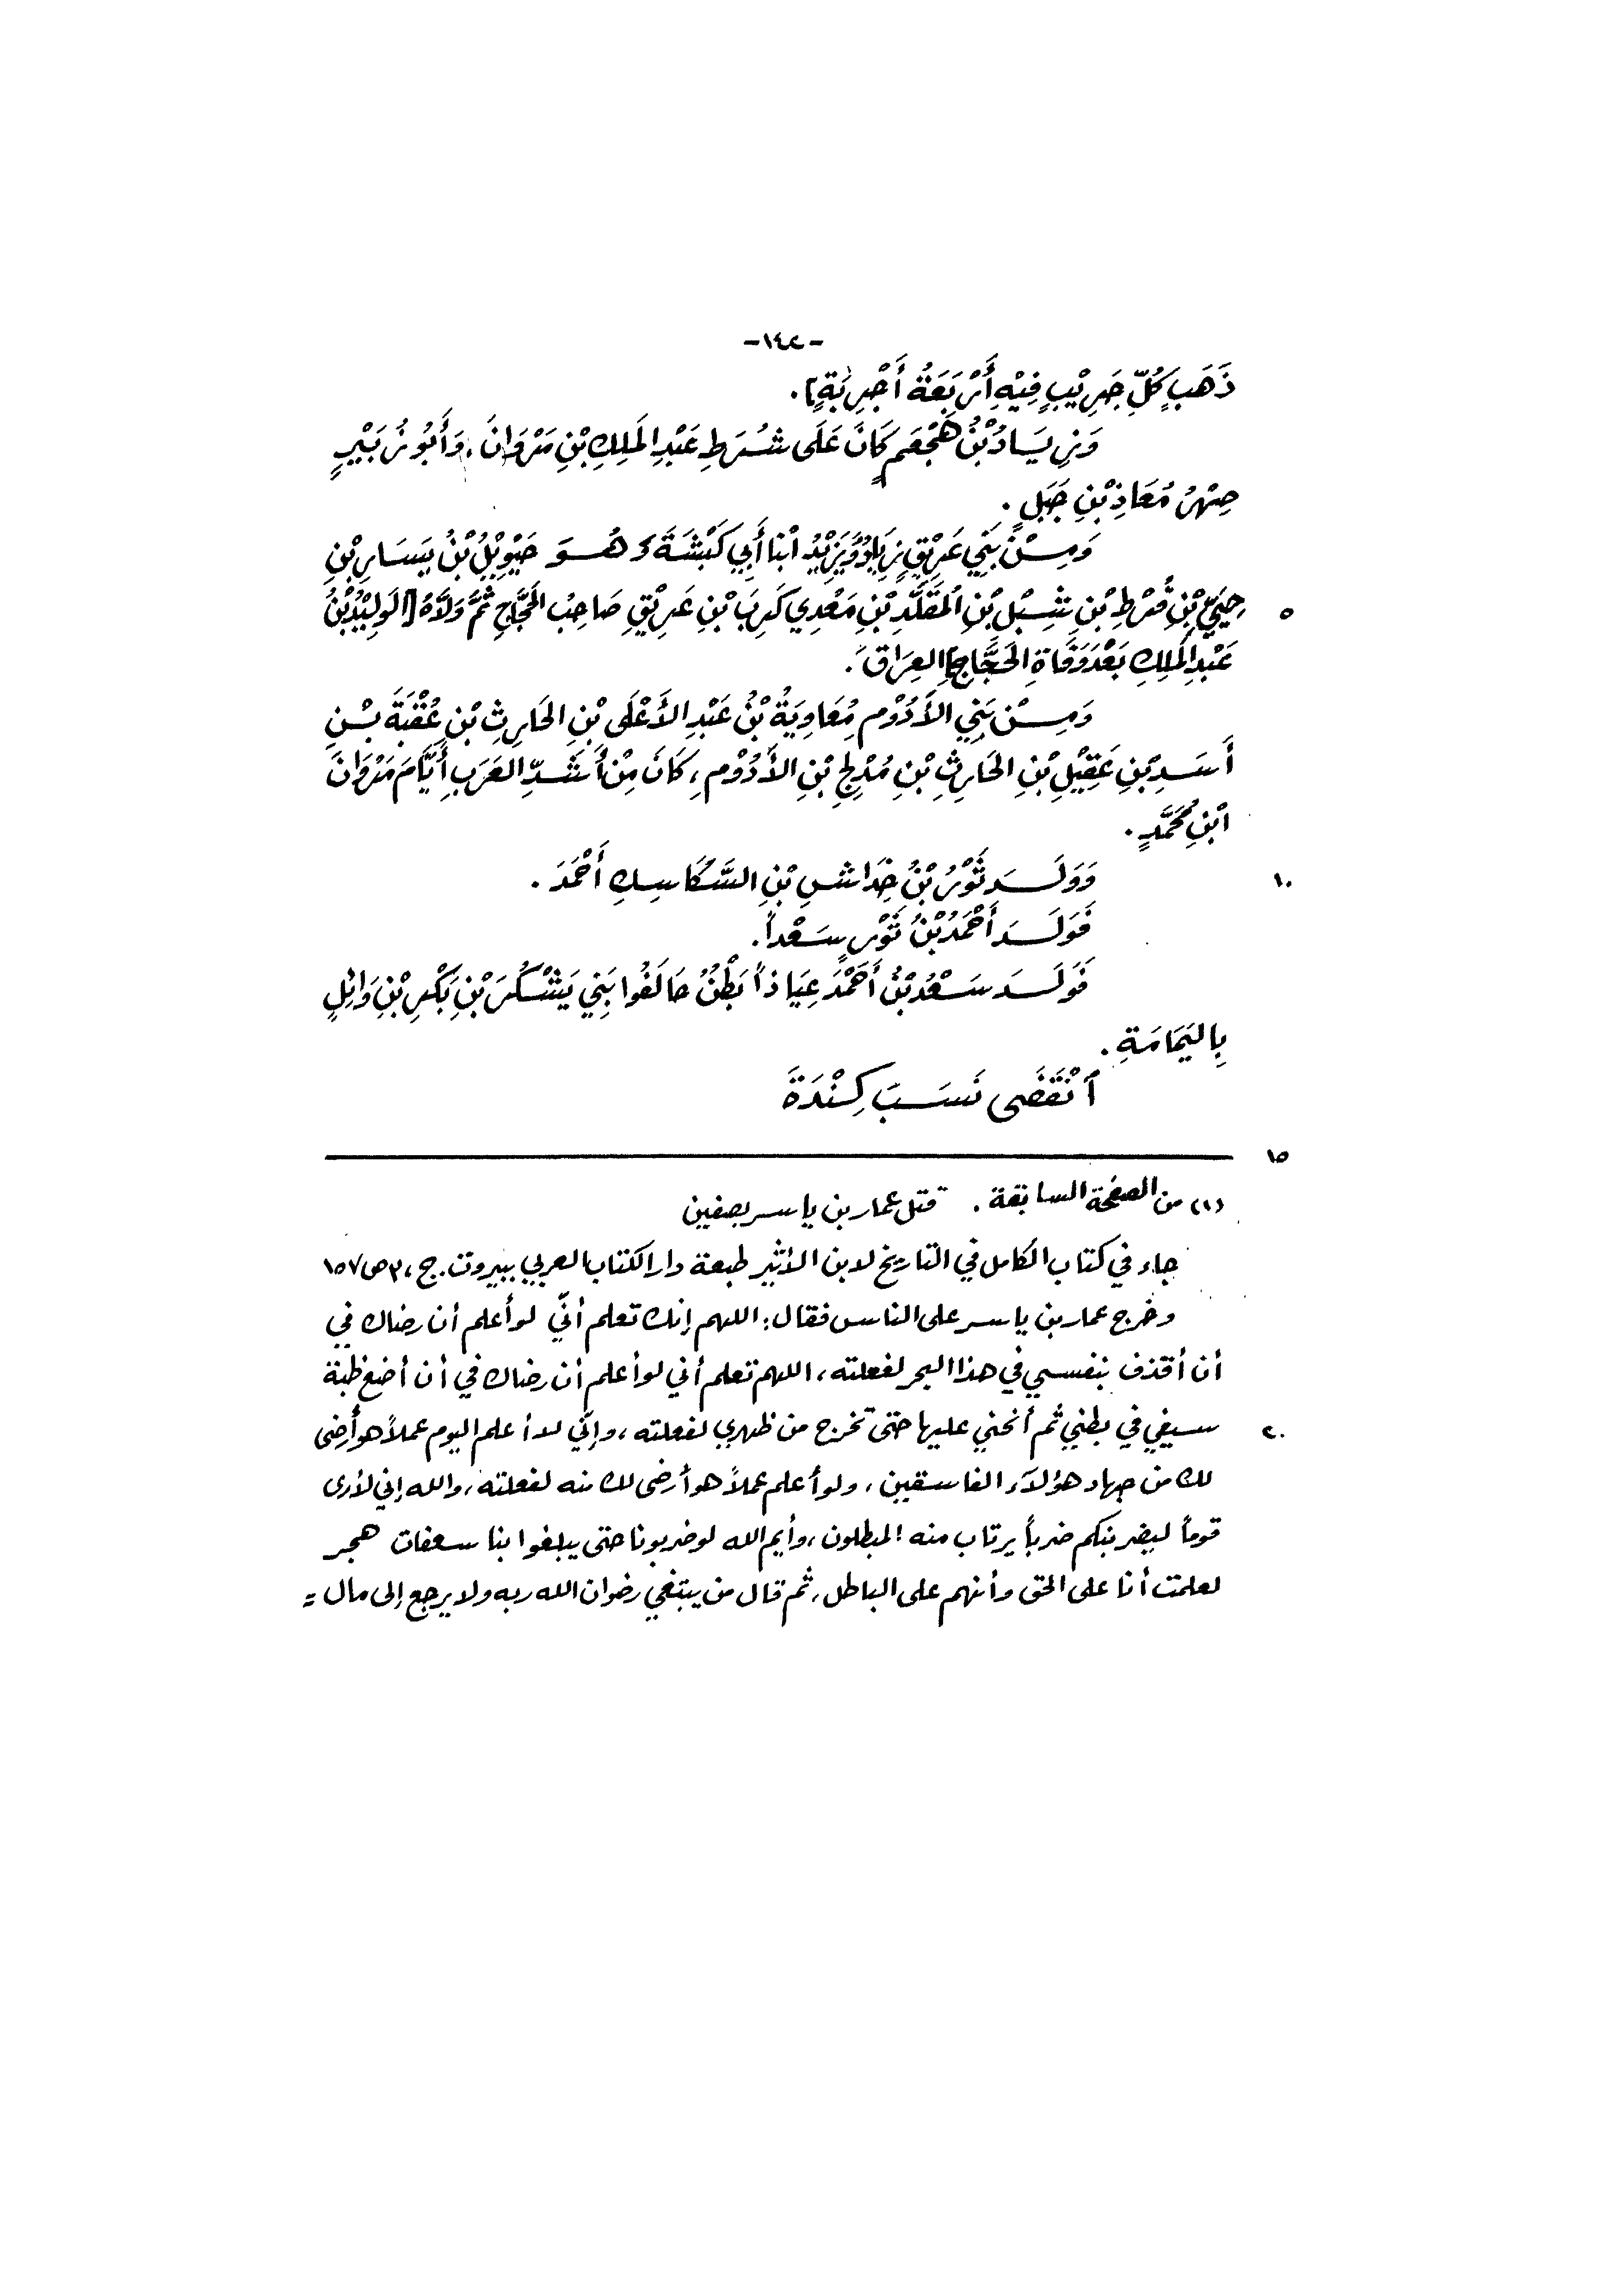 -١٤٢-
ذَهَبٍ كُلِّ جَرِيْبٍ فِيْهِ أَرْبَعَةُ أَجْرِبَةٍ].
وَزِيَادُ بْنُ هَجْعَمٍ كَانَ عَلَى شُرَطِ عَبْدِ المَلِكِ بْنِ مَرْوَانَ، وَأَبُو زُبَيْرٍ
صِهْرُ مُعَاذِ بْنِ جَبَلٍ.
وَمِنْ بَنِي عَرِيْقٍ زِيَادُ وَيَزِيْدُ ابْنَا أَبِي كَبْشَةَ وَهُوَ حَيْوِيْلُ بْنُ يَسَارِ بْنِ
حُيَيِّ بْنِ قُرْطِ بْنِ شِبْلِ بْنِ المُقَلَّدِ بْنِ مَعْدِي كَرِبَ بْنِ عَرِيْقٍ صَاحِبُ الحَجَّاجِ ثُمَّ وَلَّاهُ [الوَلِيْدُ بْنُ
٥
عَبْدِ المَلِكِ بَعْدَ وَفَاةِ الحَجَّاجِ] العِرَاقَ.
وَمِنْ بَنِي الأَدْوَمِ مُعَاوِيَةُ بْنُ عَبْدِ الأَعْلَى بْنِ الحَارِثِ بْنِ عُقْبَةَ بْنِ
أَسَدِ بْنِ عَقِيْلِ بْنِ الحَارِثِ بْنِ مُدْلِجِ بْنِ الأَدْوَمِ، كَانَ مِنْ أَشَدِّ العَرَبِ أَيَّامَ مَرْوَانَ
ابْنِ مُحَمَّدٍ.
وَوَلَدَ ثَوْرُ بْنُ خِدَاشِ بْنِ السَّكَاسِكِ أَحْمَدَ.
١٠
فَوَلَدَ أَحْمَدُ بْنُ ثَوْرٍ سَعْداً.
فَوَلَدَ سَعْدُ بْنُ أَحْمَدَ عِيَاذاً بَطْنٌ حَالَفُوا بَنِي يَشْكُرَ بْنِ بَكْرِ بْنِ وَائِلٍ
بِاليَمَامَةِ.
اْنْقَضَى نَسَبَ كِنْدَةَ
١٥
(١) من الصفحة السابقة. قتل عمار بن ياسر بصفين
جاء في كتاب الكامل في التاريخ لابن الأثير طبعة دار الكتاب العربي ببيروت. ج ،٣ ص ١٥٧
وخرج عمار بن ياسر على الناس فقال: اللهم إنك تعلم أنّي لو أعلم أن رضاك في
أن أقذف بنفسي في هذا البحر لفعلته، اللهم تعلم أني لو أعلم أن رضاك في أن أضع ظبة
سيفي في بطني ثم أنحني عليها حتى تخرج من ظهري لفعلته، وإنّي لا أعلم اليوم عملاً هو أرضى
٢٠
لك من جهاد هؤلاء الفاسقين، ولو أعلم عملاً هو أرضى لك منه لفعلته، والله إني لأرى
قوماً ليضربنكم ضرباً يرتاب منه المبطلون، وأيم الله لو ضربونا حتى يبلغوا بنا سعفات هجر
لعلمت أنا على الحق وأنهم على الباطل، ثم قال من يبتغي رضوان الله ربه ولا يرجع إلى مال =